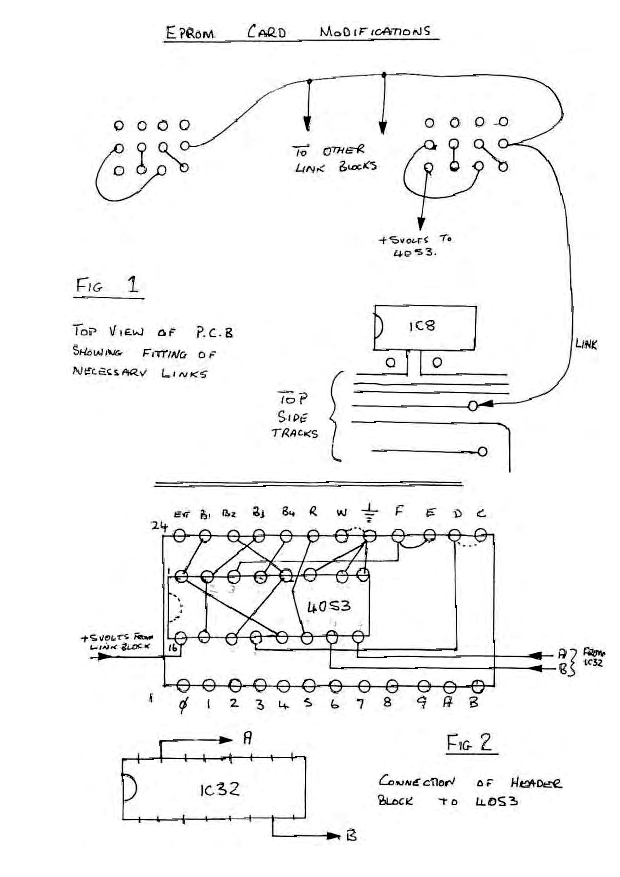 EPROM CARD MODIFICATIONS
TO OTHER
LINK BLOCKS
+5VOLTS TO
4053.
FIG 1
TOP VIEW OF P.C.B
SHOWING FITTING OF
NECESSARY LINKS
IC8
LINK
TOP
SIDE
TRACKS
EXT B1 B2 B3 B4 R W F E D C
24
1
2 3
4053
+5VOLTS FROM
LINK BLOCK
16
A
B
FROM
IC32
1
0 1 2 3 4 5 6 7 8 9 A B
A
FIG 2
IC32
CONNECTION OF HEADER
BLOCK TO 4053
B